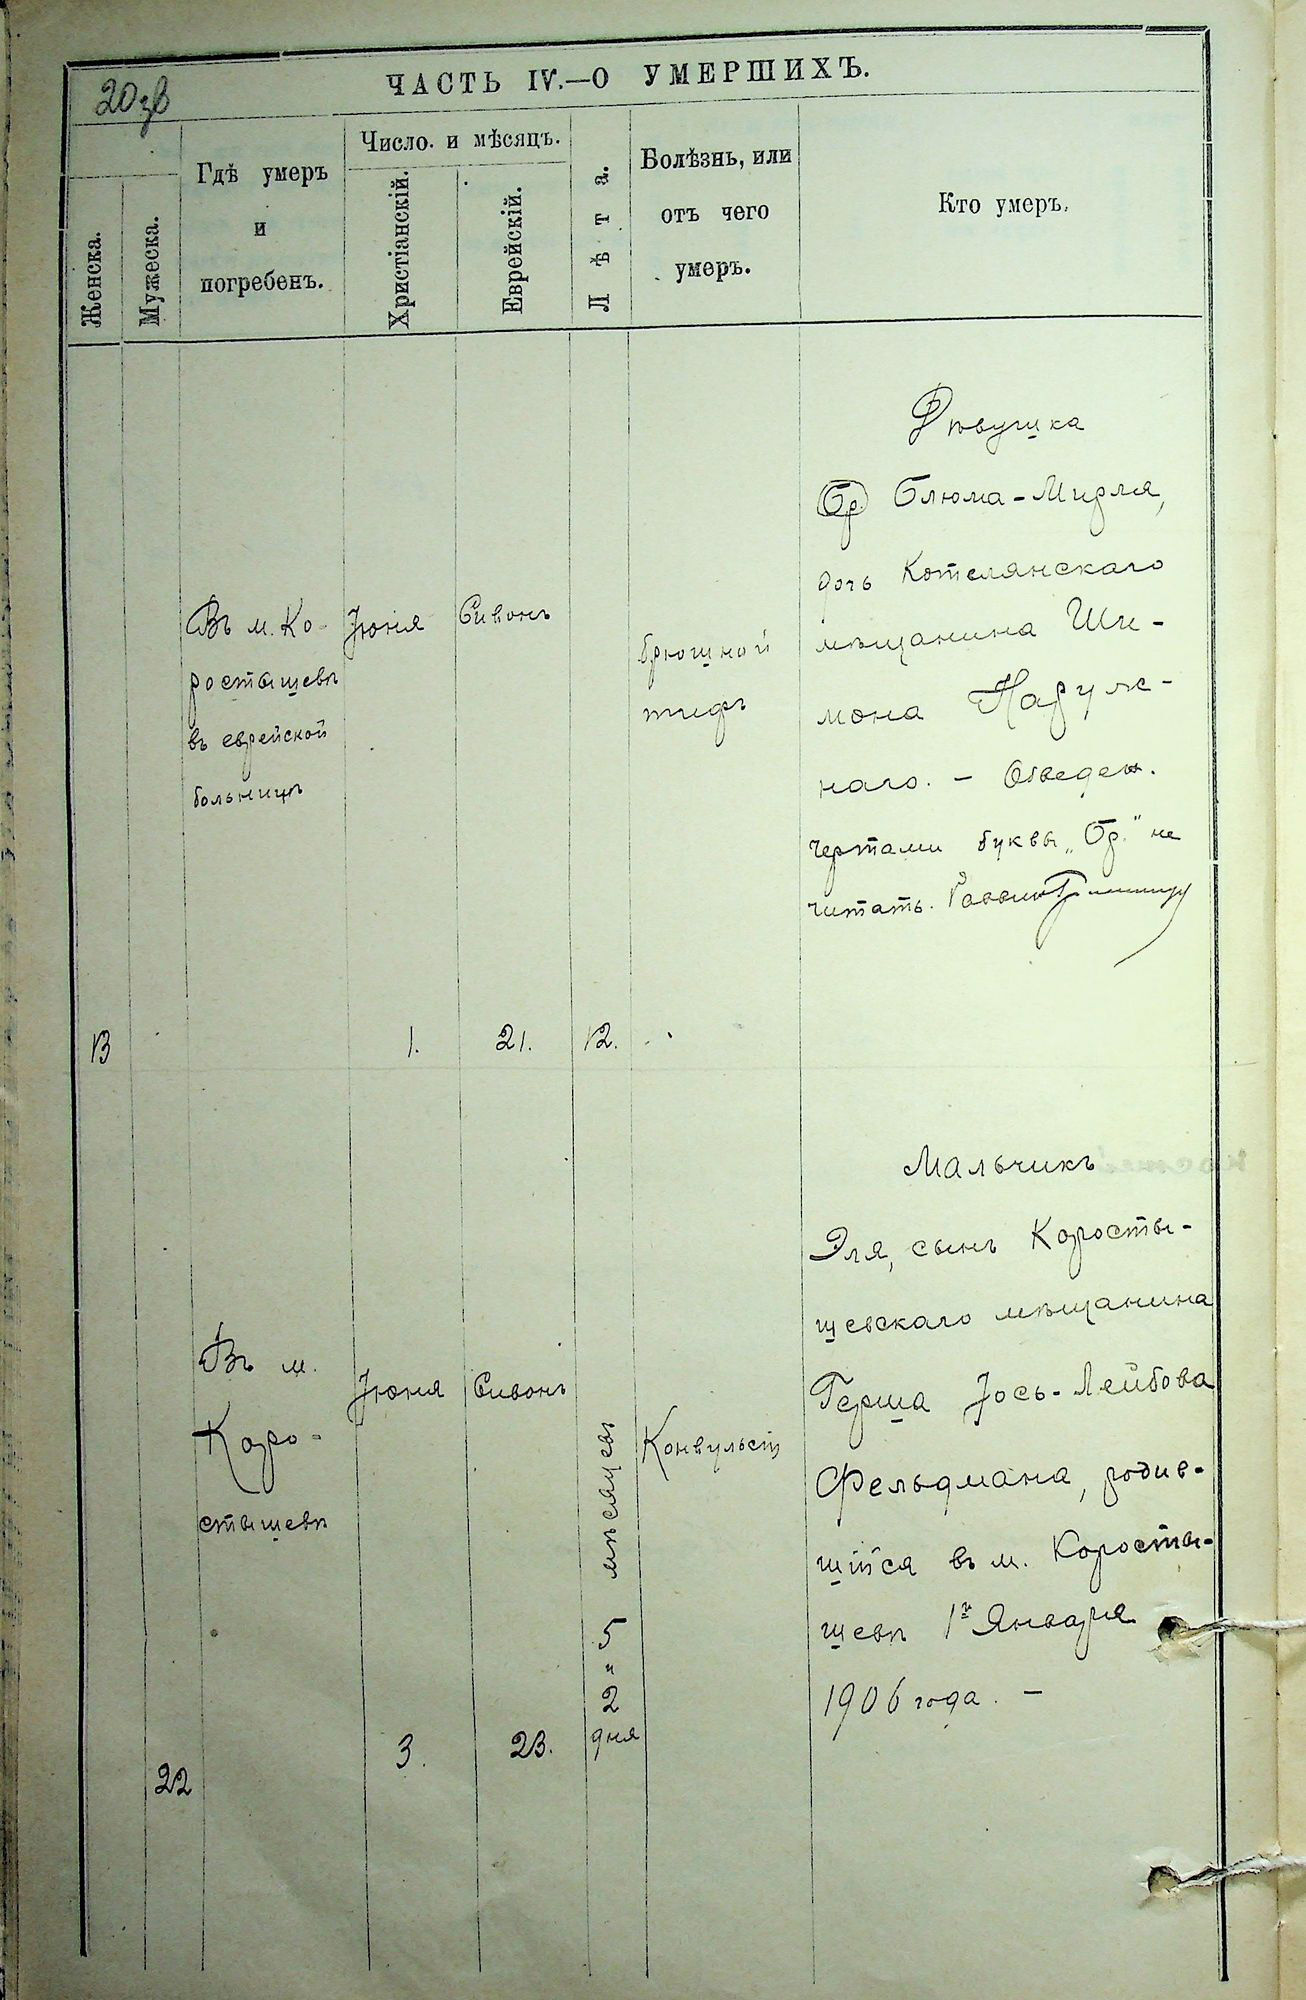 20зв
ЧАСТЬ IV.—О УМЕРШИХЪ.
Женска.
Мужеска.
Гдѣ умеръ
и
погребенъ.
Число. и мѣсяцъ.
Христіанскій.
Еврейскій.
Лѣта.
Болѣзнь, или
отъ чего
умеръ.
Кто умеръ.
13
Въ м. Ко-
ростышевѣ
въ еврейской
больницѣ
Іюня
1.
Сивонъ
21.
12.
брюшной
тифъ
Дѣвушка
Бр. Блюма-Мирля,
дочь Котелянскаго
мѣщанина Ши-
мона Наруж-
наго. — Обведен.
чертами буквы „Бр." не
читать. Раввин
22
Въ м.
Коро-
стышевѣ
Іюня
3.
Сивонъ
23.
5 мѣсяцевъ
и 2
дня
Конвульсія
Мальчикъ
Эля, сынъ Коросты-
шевскаго мѣщанина
Герша Іось-Лейбова
Фельдмана, родив-
шійся въ м. Коросты-
шевѣ 1го Января
1906 года. —